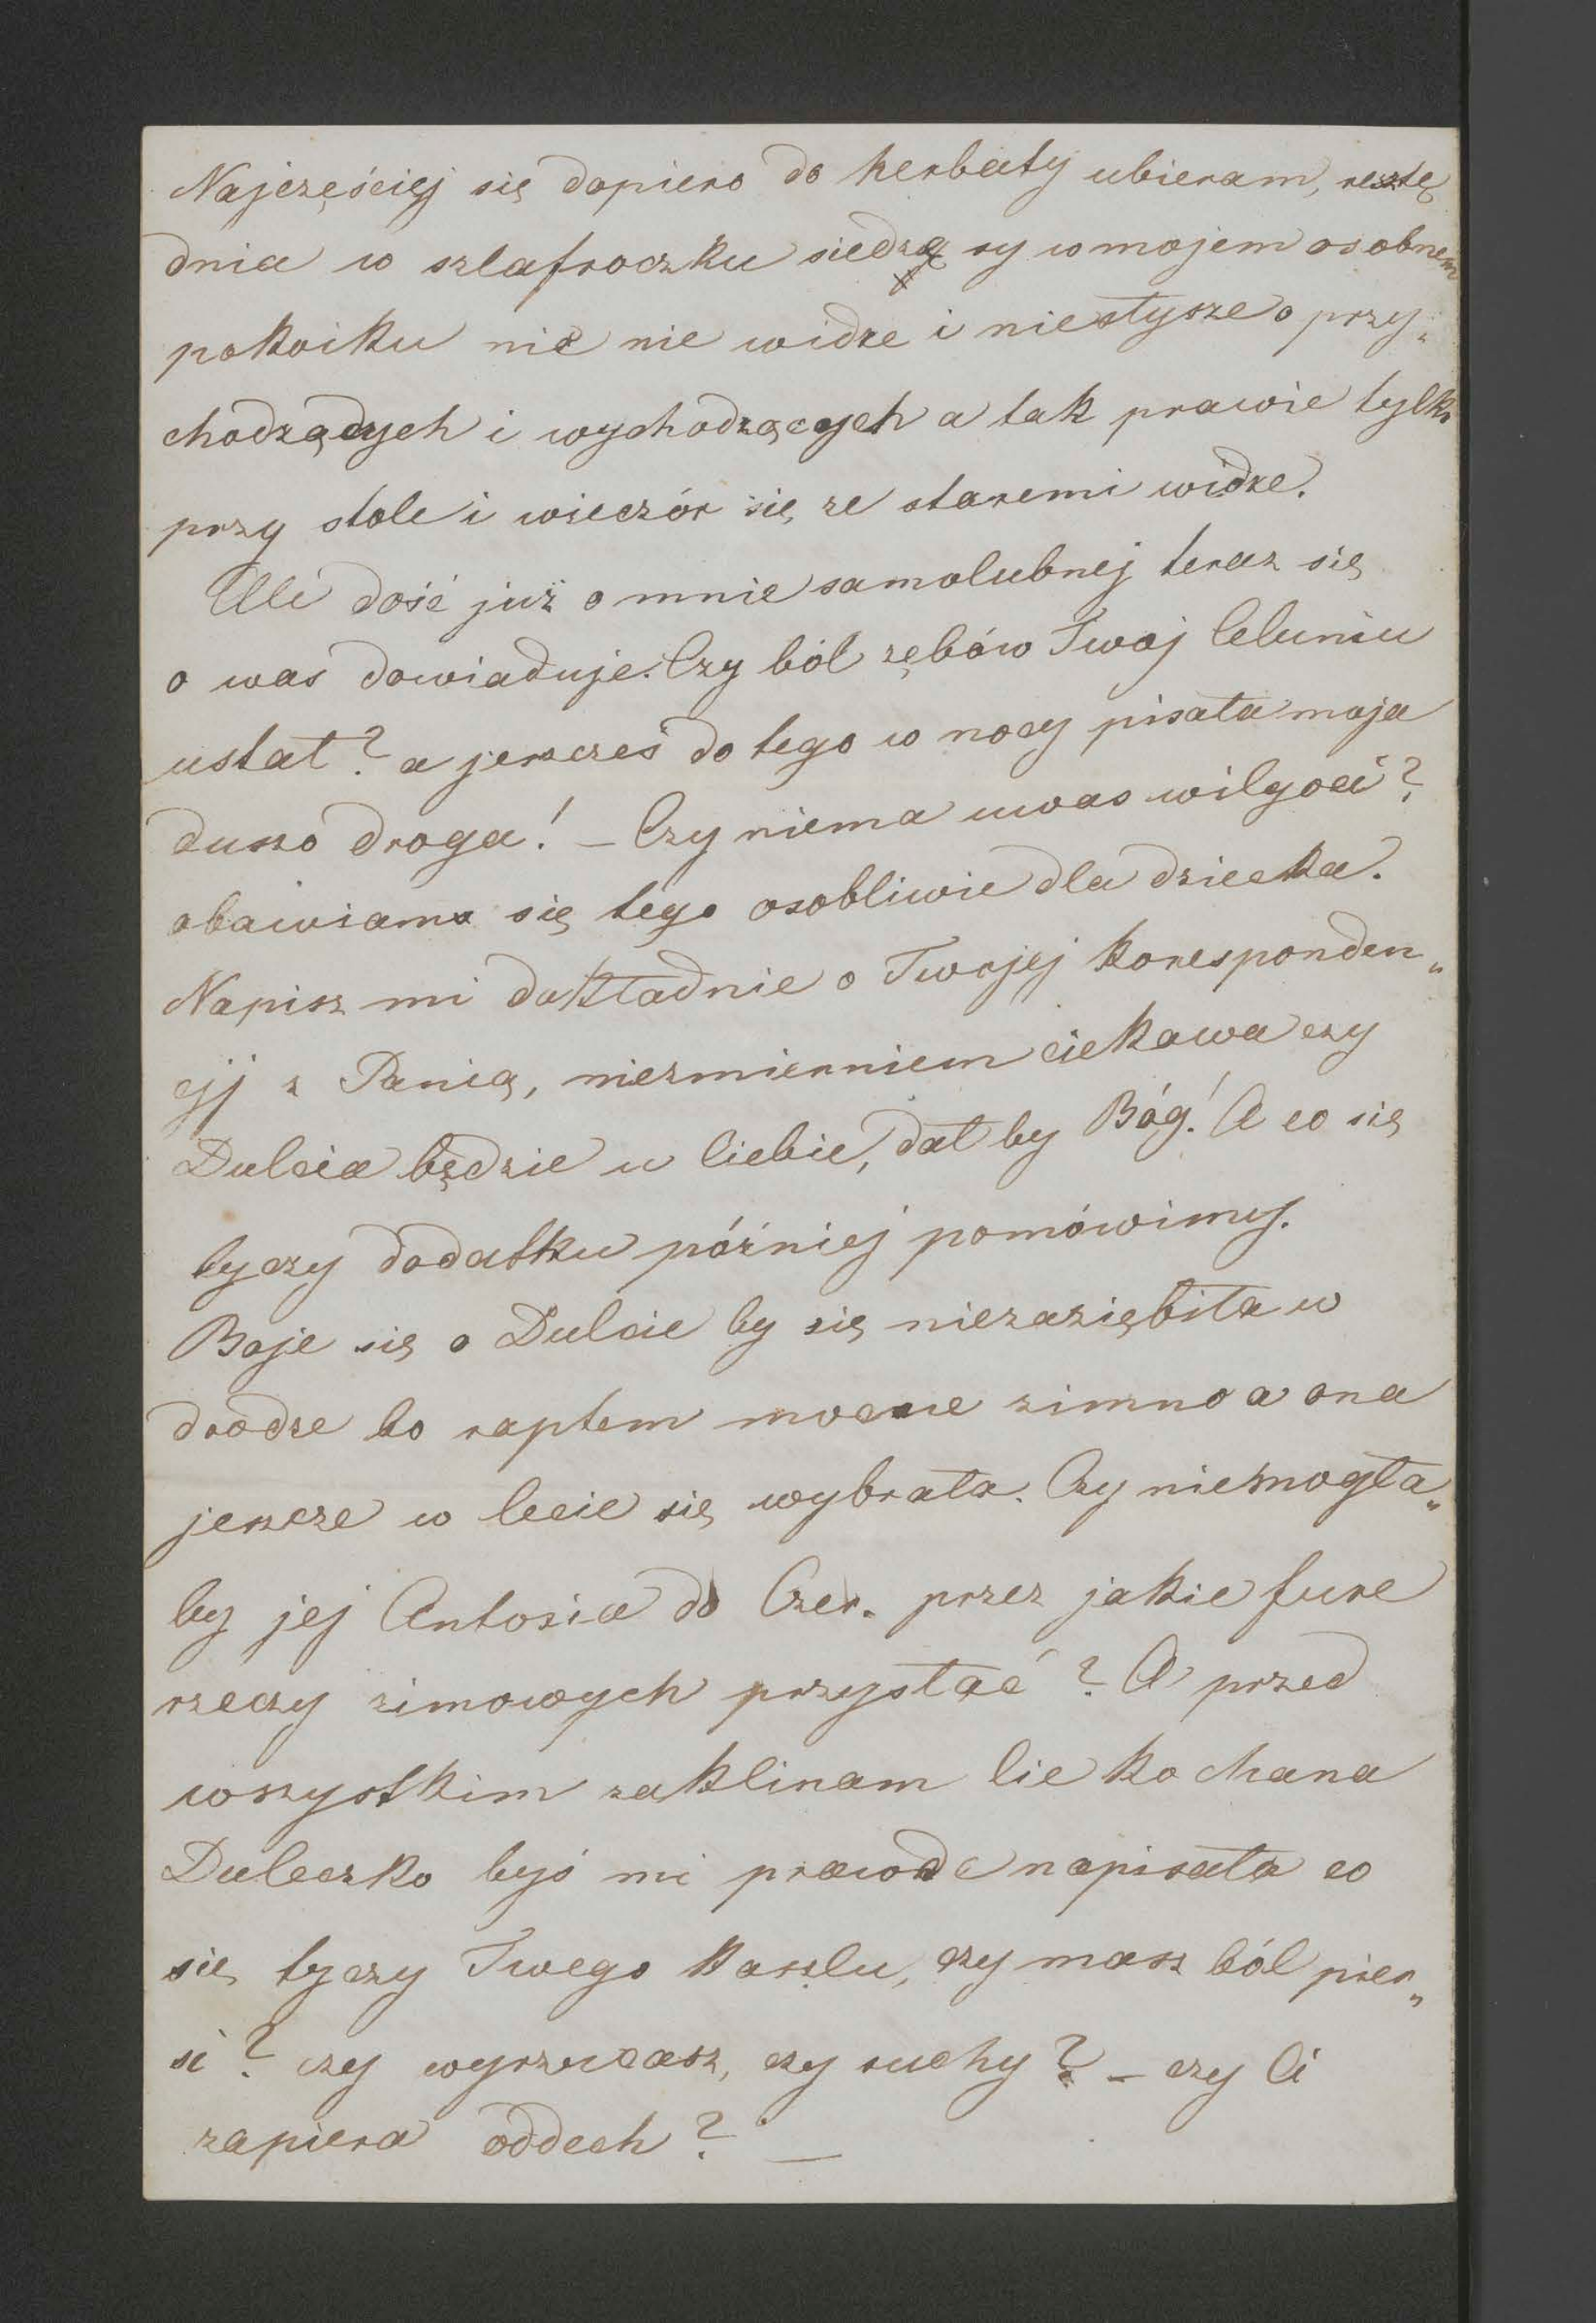 Najczęściej się dopiero do herbaty ubieram, resztę
dnia w szlafroczku siedzę w mojem osobnem
pokoiku nic nie widze i niesłysze o przy„
chodzących i wychodzących a tak prawie tylko
przy stole i wieczór się ze staremi widze.
Ale dość już o mnie samolubnej teraz się
o was dowiaduje. Czy ból zębów Twój Celuniu
ustał? a jeszcześ do tego w nocy pisała moja
duszo droga! – Czy niema uwas wilgoci?
obawiama się tego osobliwie dla dziecka.
Napisz mi dokładnie o Twojej koresponden„
cji z Panią, niezmierniem ciekawa czy
Dulcia będzie u Ciebie, dał by Bóg! A co się
tyczy dodatku później pomówimy.
Boje się o Dulcie by się niezaziębiła w
drodze bo raptem mocne zimno a ona
jeszcze w lecie się wybrała. Czy niemogła„
by jej Antosia do Czer. przez jakie fure
rzeczy zimowych przysłać? A przed
wszystkim zaklinam Cie kochana
Duleczko byś mi prawde napisała co
się tyczy Twego kaszlu, czy masz ból pier„
si? czy wyrzucasz, czy suchy? – czy Ci
zapiera oddech? –